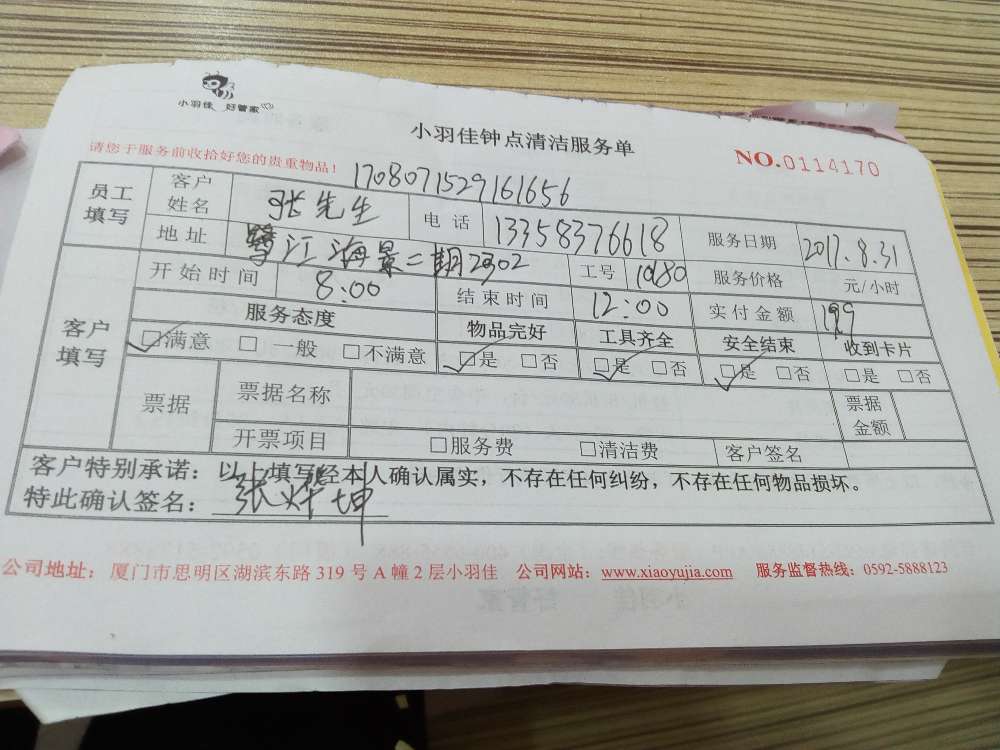 小羽佳 好管家
小羽佳钟点清洁服务单
NO.0114170
请您于服务前收拾好您的贵重物品！
1708071529161656
员工填写 客户姓名 张先生 电话 13358376618 服务日期 2017.8.31
地址 鹭江海景二期2302 工号 1080 服务价格 元/小时
客户填写 开始时间 8:00 结束时间 12:00 实付金额 199
服务态度 物品完好 工具齐全 安全结束 收到卡片
☑满意 □一般 □不满意 ☑是 □否 ☑是 □否 ☑是 □否 □是 □否
票据 票据名称 票据金额
开票项目 □服务费 □清洁费 客户签名
客户特别承诺：以上填写经本人确认属实，不存在任何纠纷，不存在任何物品损坏。
特此确认签名：张坤
公司地址：厦门市思明区湖滨东路 319 号 A 幢 2 层小羽佳 公司网站：www.xiaoyujia.com 服务监督热线：0592-5888123